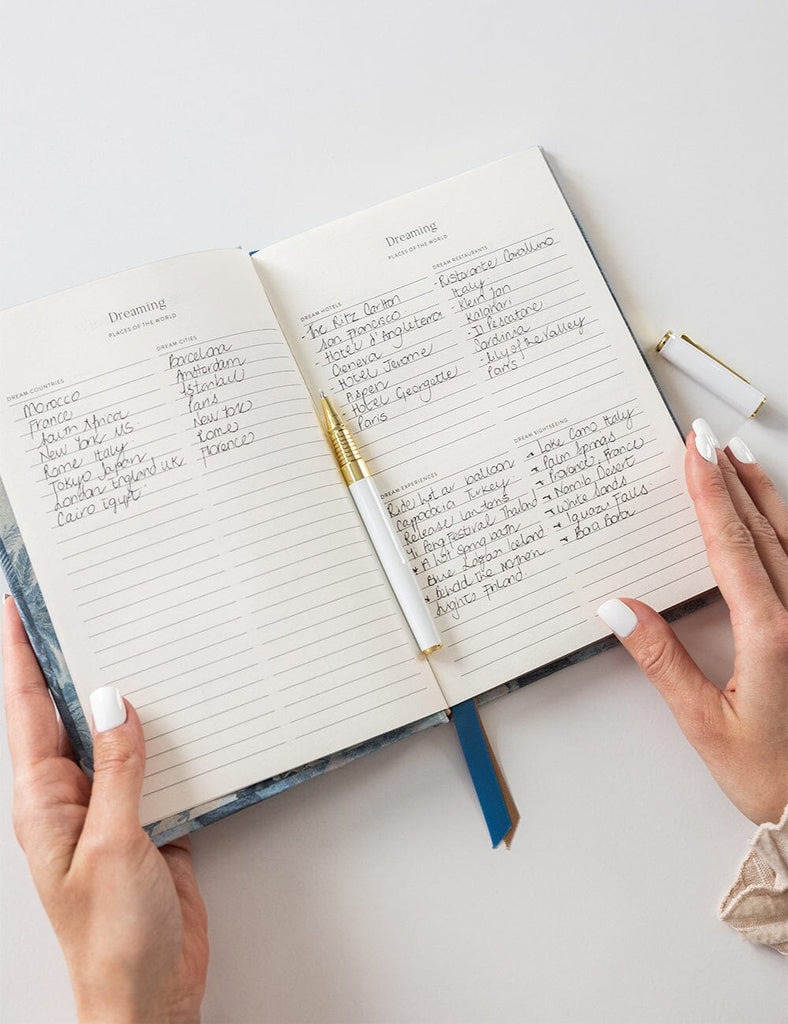 Dreaming
PLACES OF THE WORLD
DREAM COUNTRIES
Morocco
France
South Africa
New York US.
Rome Italy.
Tokyo Japan
London England UK
Cairo Egypt
DREAM CITIES
Barcelona
Amsterdam
Istanbull
Paris
New York
Rome
Florence
Dreaming
PLACES OF THE WORLD
DREAM HOTELS
- The Ritz Carlton
San Francisco
- Hotel d'Angleterre
Geneva
- Hotel Jerome
Aspen
- Hotel Georgette
Paris
DREAM RESTAURANTS
- Ristorante Cavallino
Italy.
- Klein Jan
Kalahari
- Il Pescatore
Sardinia
- Lily of the Valley
Paris
DREAM EXPERIENCES
Ride hot air balloon
Cappadocia Turkey
Release lanterns
Yi Peng Festival Thailand
A hot spring bath
Blue Lagoon Iceland
Behold the Northern
Lights Finland.
DREAM SIGHTSEEING
Lake Como Italy
Palm Springs
Provence, France
Namib Desert
White Sands
Iguazu Falls.
Bora Bora